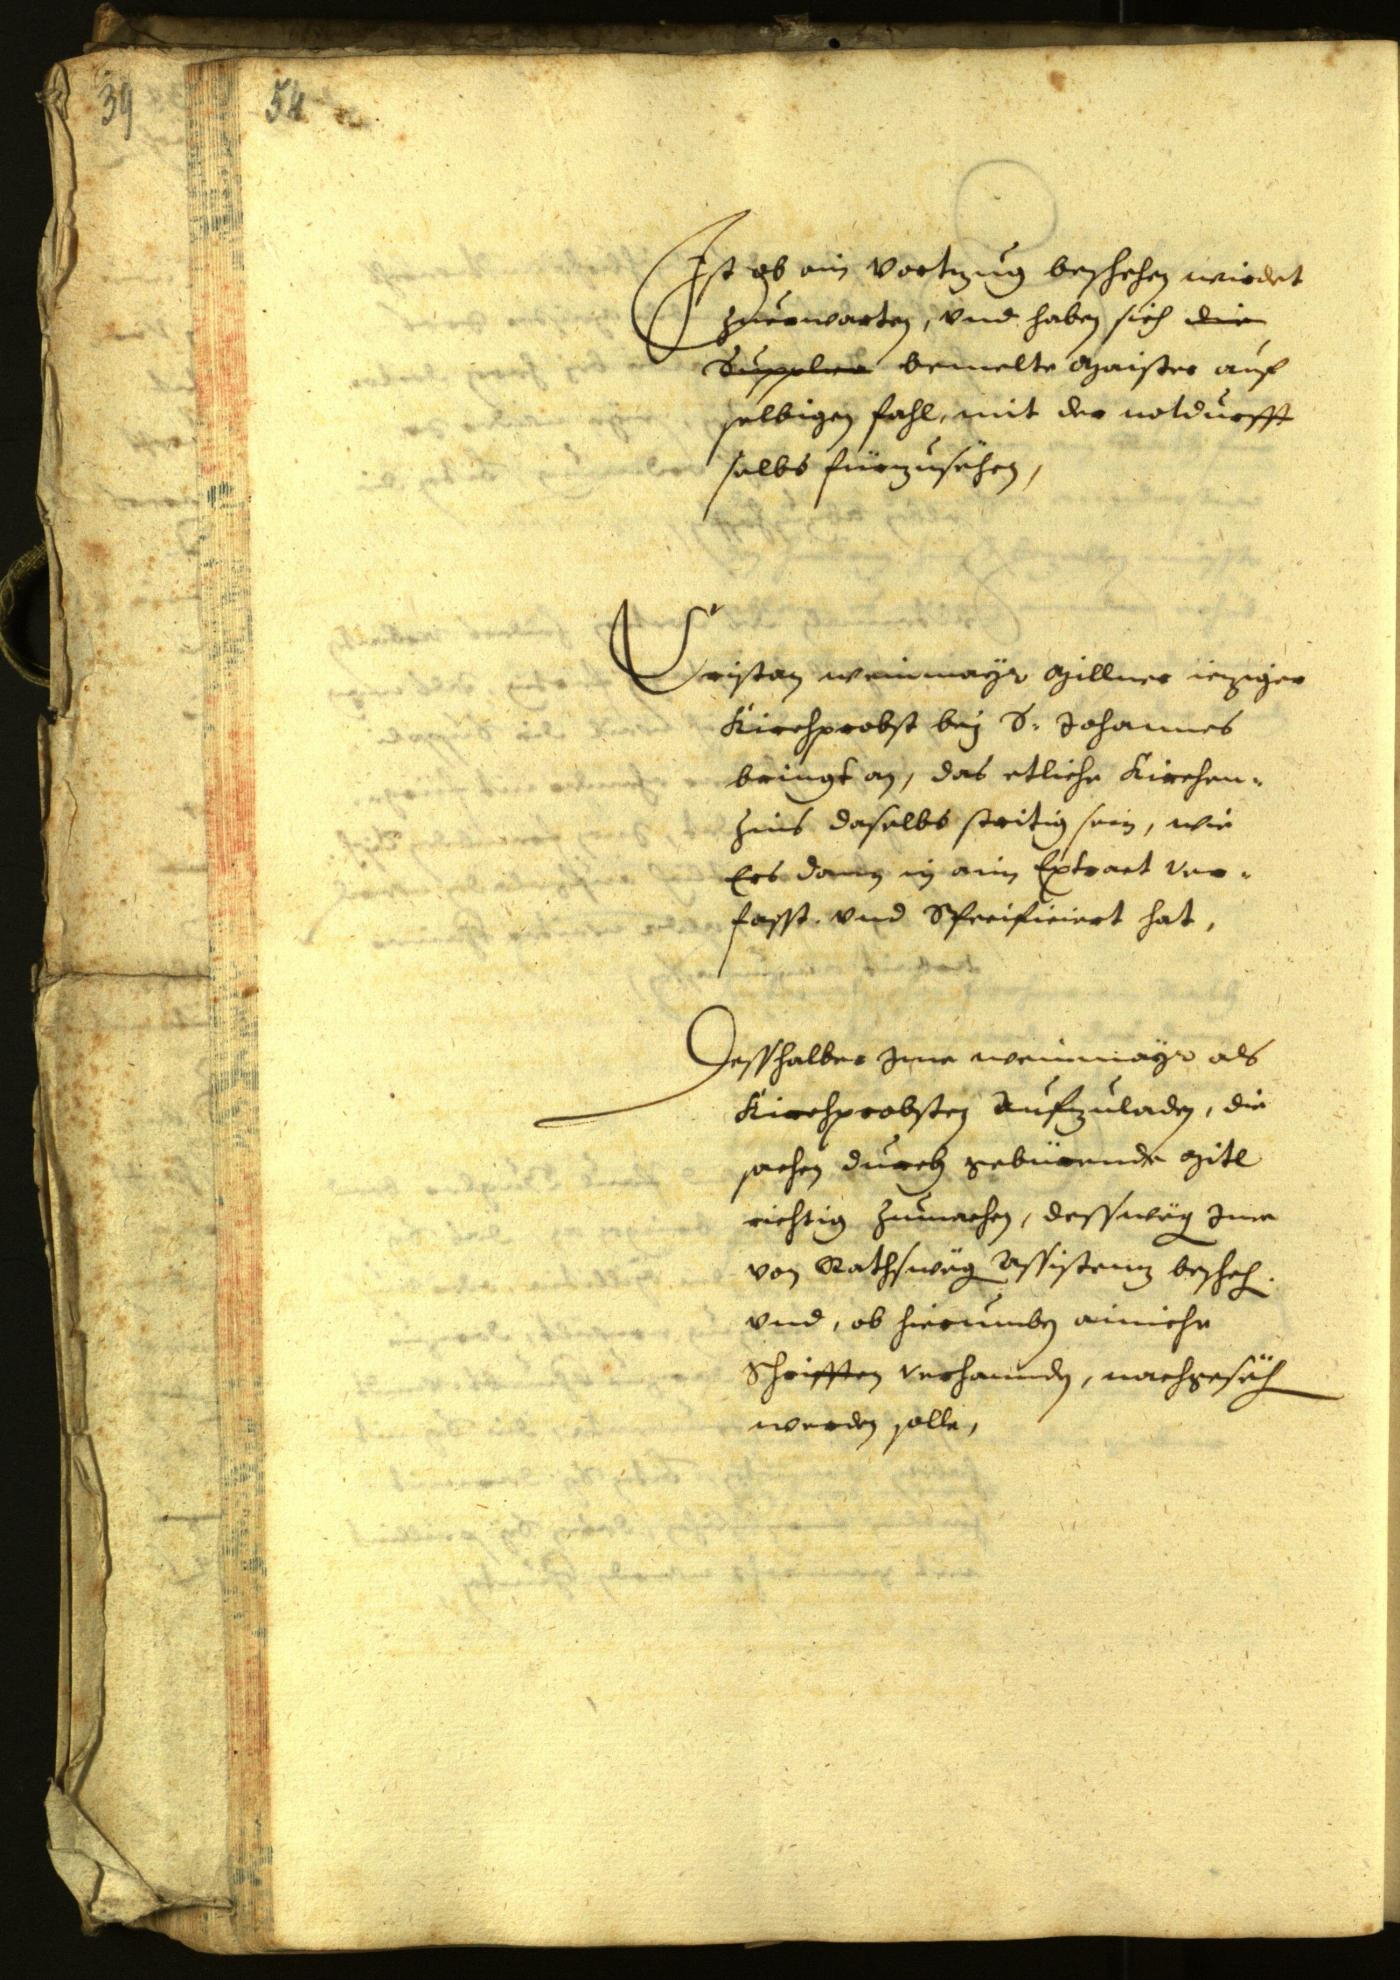 39
54
Ist ob ain Vortzug beschehen wirdet
zuerwarten, vnd haben sich die
Supplica bemelte Maister auf
selbigen fahl, mit der notdurfft
selbs fürzusehen,
Cristan weinmayr Millner ieziger
Kirchprobst bey S: Johannes
bringt an, das etliche Kirchen-
zins daselbs stritig sein, wie
Ers dann in ain Extract ver-
fasst vnd Specificiert hat,
Desshalber Ime weinmayr als
Kirchprobsten Aufzuladen, die
sachen durch gebürende Mitl
richtig zumachen, dessweg Ime
von Rathsweg Assistenz bescheh.
vnd, ob hierumben ainiche
Schrifften verhannden, nachgeseh
werden solle,